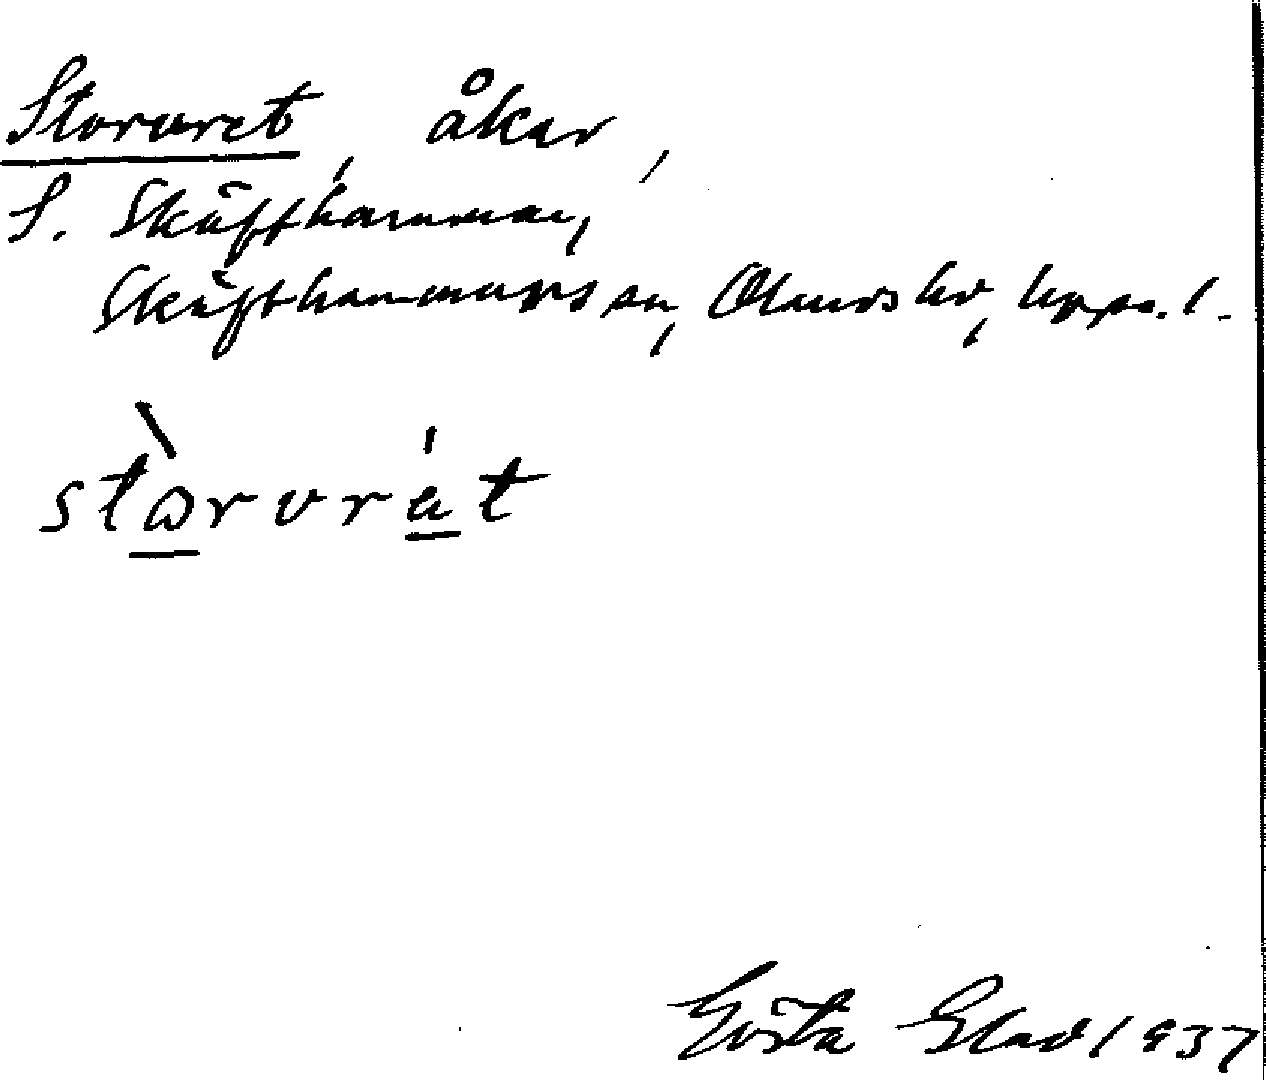 Storvret, åker,
S. Skäfthammar,
Skäfthammars sn, Olands hd, Upps. l.
stωrvrat
Gösta Glad 1937